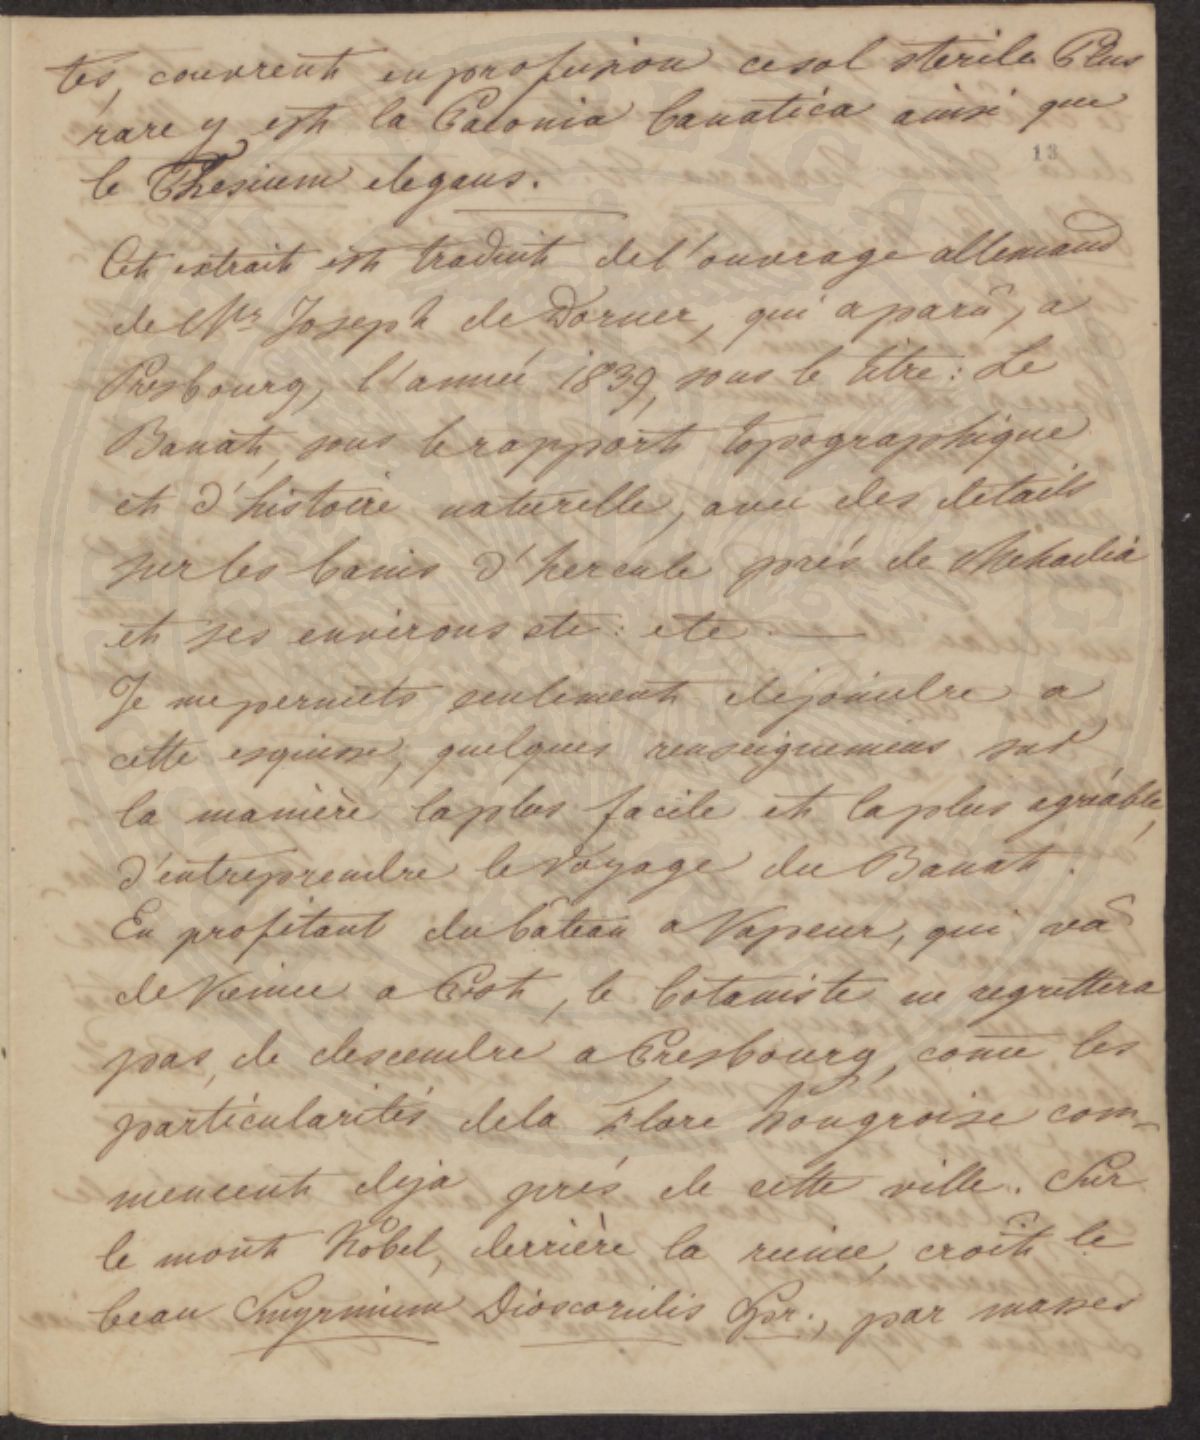 tes, couvrent en profusion ce sol sterile. Plus
rare y est la Paeonia banatica ainsi que
13
le Thesium elegans.
Cet extrait est traduit de l'ouvrage allemand
de Mr Joseph de Dorner, qui a parû, a
Presbourg, l'année 1839, sous le titre: Le
Banat, sous le rapport topographique
et d'histoire naturelle, avec des details
sur les bains d'hercule prés de Mehadia
et ses environs etc: etc —
Je me permets seulement de joindre a
cette esquisse, quelques renseignemens sur
la manière la plus facile et la plus agréable,
d'entreprendre le voyage du Banat.
En profitant du bâteau a Vapeur, qui va
de Vienne a Pest, le botaniste ne regrettera
pas, de descendre a Presbourg, come les
particularités de la Flore hongroise com-
mencent deja prés de cette ville. Sur
le mont Kobel, derrière la ruine, croît le
beau Smyrnium Dioscoridis Spr., par masses